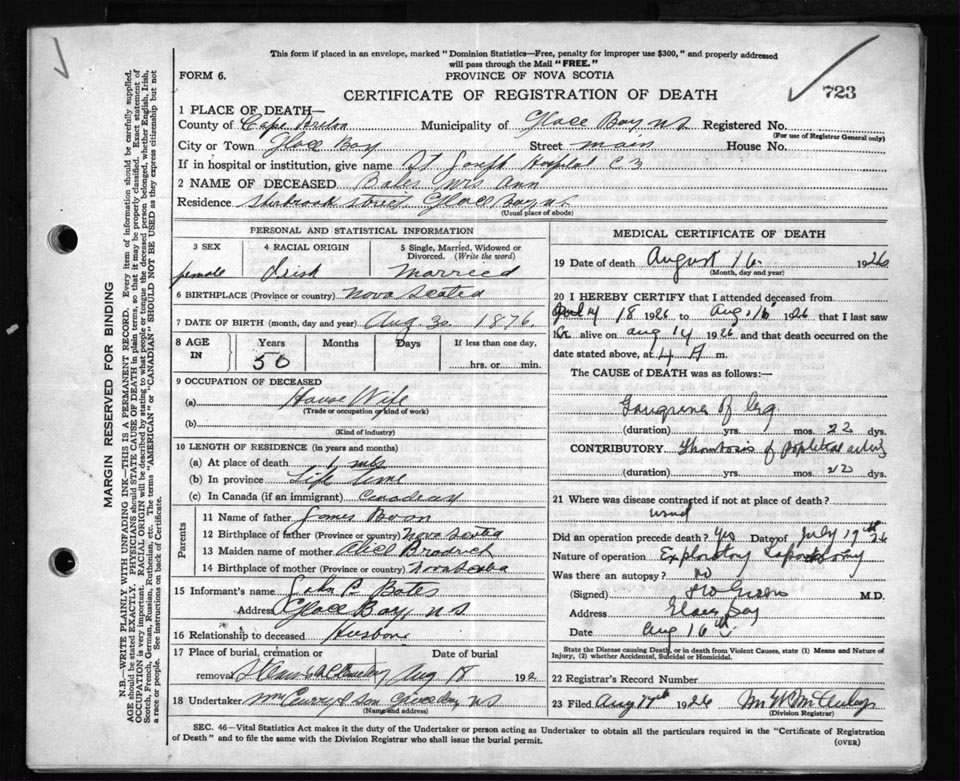 This form if placed in an envelope, marked "Dominion Statistics—Free, penalty for improper use $300," and properly addressed
will pass through the Mail "FREE."
FORM 6.
PROVINCE OF NOVA SCOTIA
CERTIFICATE OF REGISTRATION OF DEATH
723
1 PLACE OF DEATH—
County of Cape Breton Municipality of Glace Bay NS Registered No.
(For use of Registrar General only)
City or Town Glace Bay Street main House No.
If in hospital or institution, give name St Joseph Hospital C B
2 NAME OF DECEASED Bates Mrs Ann
Residence Sherbrook street Glace Bay NS
(Usual place of abode)
PERSONAL AND STATISTICAL INFORMATION
3 SEX 4 RACIAL ORIGIN 5 Single, Married, Widowed or Divorced. (Write the word)
female Irish Married
6 BIRTHPLACE (Province or country) Nova Scotia
7 DATE OF BIRTH (month, day and year) Aug 30 1876
8 AGE IN Years Months Days If less than one day,
50 hrs. or min.
9 OCCUPATION OF DECEASED
(a) House Wife
(Trade or occupation or kind of work)
(b)
(Kind of industry)
10 LENGTH OF RESIDENCE (in years and months)
(a) At place of death 1
(b) In province Life time
(c) In Canada (if an immigrant) Canadean
Parents
11 Name of father James
12 Birthplace of father (Province or country) Nova Scotia
13 Maiden name of mother Alice Brodrick
14 Birthplace of mother (Province or country) Nova Scotia
15 Informant's name John P Bates
Address Glace Bay NS
16 Relationship to deceased Husbon
17 Place of burial, cremation or Date of burial
removal Aug 18 192
18 Undertaker son Glace Bay NS
(Name and address)
MEDICAL CERTIFICATE OF DEATH
19 Date of death August 16 1926
(Month, day and year)
20 I HEREBY CERTIFY that I attended deceased from
18 1926 to Aug 16 1926, that I last saw
her alive on aug 14 1926, and that death occurred on the
date stated above, at 4 A m.
The CAUSE of DEATH was as follows:—
Gangrene of leg
(duration) yrs. mos. 22 dys.
CONTRIBUTORY Thombosis of popliteal artery
(duration) yrs. mos. 22 dys.
21 Where was disease contracted if not at place of death?
Did an operation precede death? Yes Date of July 17th 26
Nature of operation Exploratory Laparotomy
Was there an autopsy? no
(Signed) M.D.
Address Glace Bay
Date aug 16th
State the Disease causing Death, or in death from Violent Causes, state (1) Means and Nature of
Injury, (2) whether Accidental, Suicidal or Homicidal.
22 Registrar's Record Number
23 Filed Aug 17th 1926
(Division Registrar)
SEC. 46—Vital Statistics Act makes it the duty of the Undertaker or person acting as Undertaker to obtain all the particulars required in the "Certificate of Registration
of Death" and to file the same with the Division Registrar who shall issue the burial permit.
(OVER)
MARGIN RESERVED FOR BINDING
N.B.—WRITE PLAINLY WITH UNFADING INK—THIS IS A PERMANENT RECORD. Every item of information should be carefully supplied.
AGE should be stated EXACTLY. PHYSICIANS should STATE CAUSE OF DEATH in plain terms, so that it may be properly classified. Exact statement of
OCCUPATION is very important. RACIAL ORIGIN will be described by stating to what people or tongue the deceased person belonged, whether English, Irish,
Scotch, French, German, Russian, Ruthenian, etc. The terms "AMERICAN" or "CANADIAN" SHOULD NOT BE USED as they express citizenship but not
a race or people. See instructions on back of Certificate.